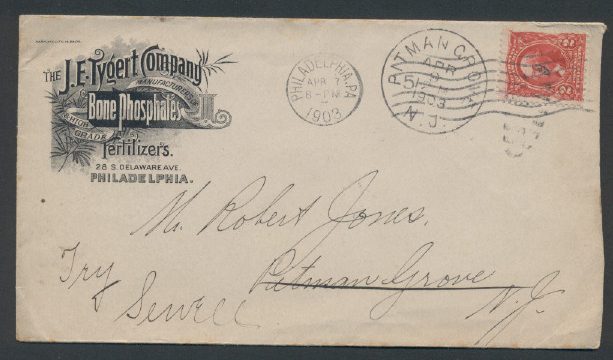 THE J.E. Tygert Company
MANUFACTURERS OF
Bone Phosphates
HIGH GRADE
Fertilizers.
28 S. DELAWARE AVE.
PHILADELPHIA.
PHILADELPHIA, PA.
APR 7
6-PM
1903
PITMAN GROVE
APR
N.J.
2 2
Mr. Robert Jones.
Pitman Grove
N.J.
Try
Sewell